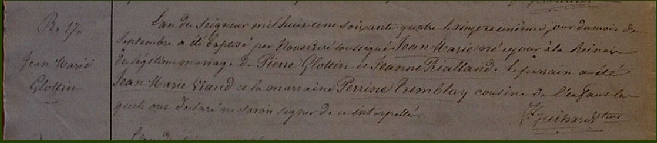 Bte 17e
Jean Marie
Glottin
L'an du Seigneur mil huit cent soixante quatre le vingt et unième jour du mois de
Septembre a été baptisé par Nous curé soussigné Jean Marie né ce jour à la
du légitime mariage de Pierre Glottin et Jeanne Rialland. Le parrain a été
Jean Marie Viaud et la marraine Perrine Tremblay cousine de l'enfant les
quels ont déclaré ne savoir signer de ce interpellés